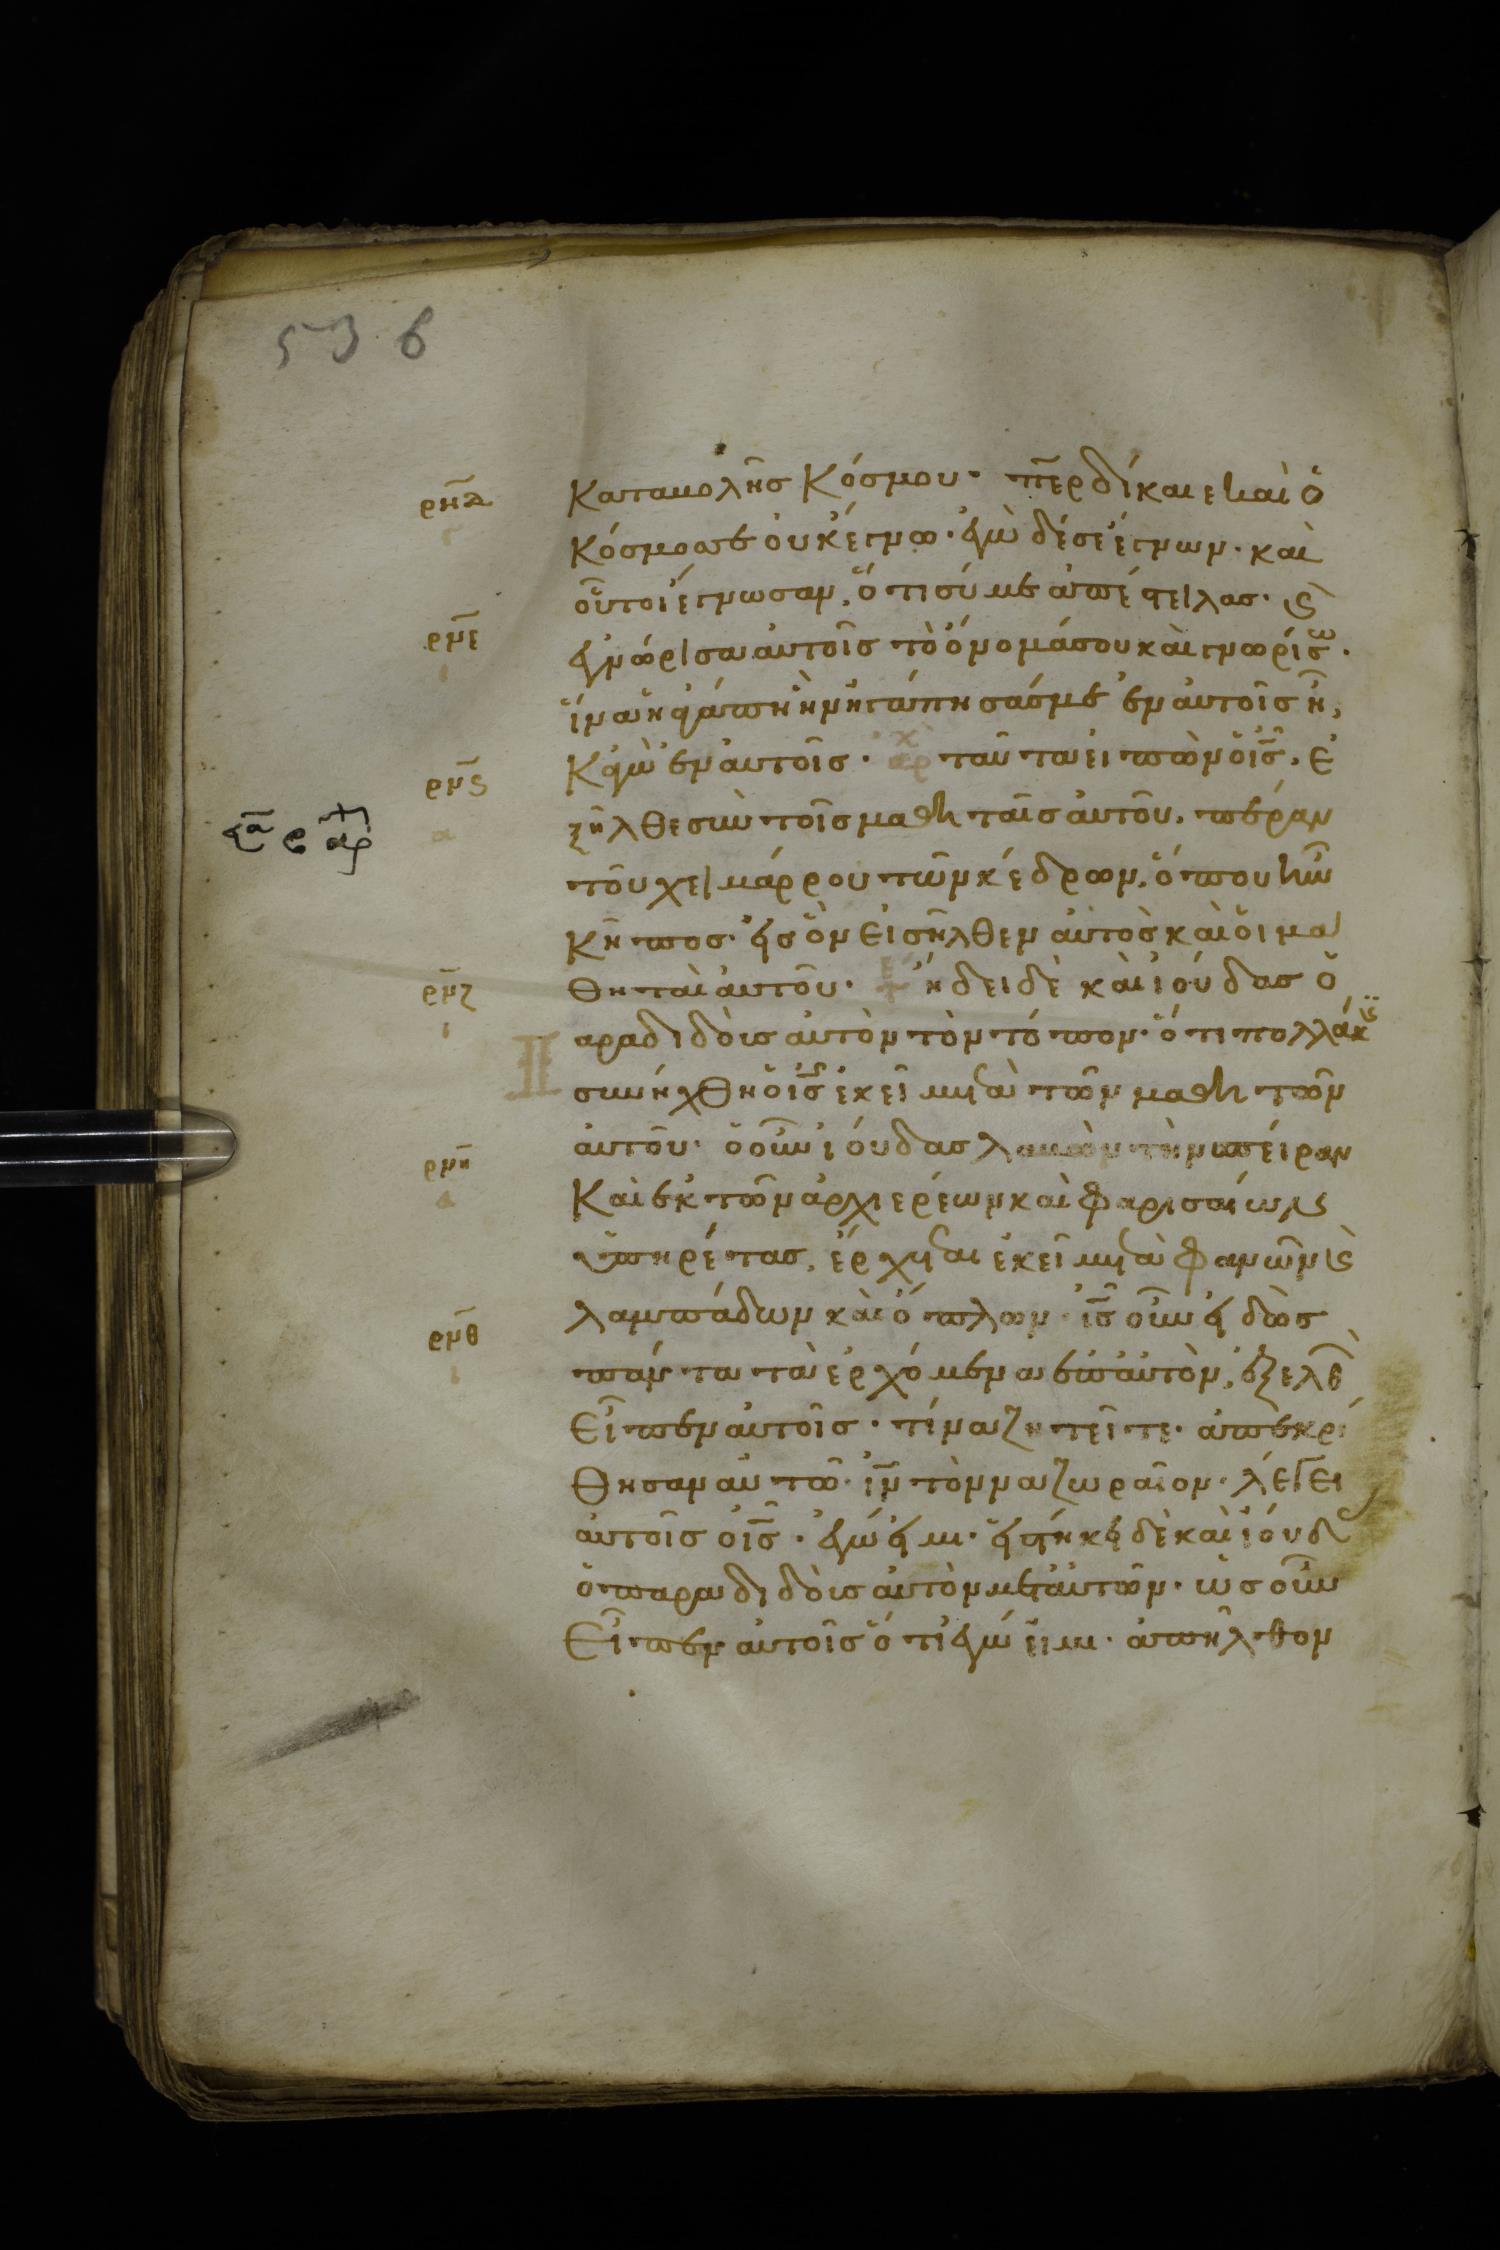 536
ρμδ
καταβολῆς κόσμου· περ δίκαιε καὶ ὁ
κόσμος σε οὐκ ἔγνω· ἐγὼ δέ σε ἔγνων· καὶ
οὗτοι ἔγνωσαν, ὅτι σύ με ἀπέστειλας· ϗ
ρμε
ἐγνώρισα αὐτοῖς τὸ ὄνομά σου καὶ γνωρίσω·
ἵνα ἡ ἀγάπη ἣν ἠγάπησάς με ἐν αὐτοῖς ἦ,
ρμϛ
κἀγὼ ἐν αὐτοῖς· αρχ ταῦτα εἰπὼν ὁ ις, ἐ
ξῆλθε σὺν τοῖς μαθηταῖς αὐτοῦ, πέραν
τοῦ χειμάρρου τῶν κέδρων, ὅπου ἦν
κῆπος· εἰς ὃν εἰσῆλθεν αὐτὸς καὶ οἱ μα
ρμζ
θηταὶ αὐτοῦ· ἤδει δὲ καὶ ἰούδας ὁ
Παραδιδοὺς αὐτὸν τὸν τόπον· ὅτι πολλάκις
συνήχθη ὁ ις ἐκεῖ μετὰ τῶν μαθητῶν
ρμη
αὐτοῦ· ὁ οὖν ἰούδας λαβὼν τὴν σπείραν
καὶ ἐκ τῶν ἀρχιερέων καὶ φαρισαίων
ὑπηρέτας, ἔρχεται ἐκεῖ μετὰ φανῶν ϗ
ρμθ
λαμπάδων καὶ ὅπλων· ις οὖν εἰδὼς
πάντα τὰ ἐρχόμενα ἐπ αὐτὸν, ἐξελθ
εἶπεν αὐτοῖς· τίνα ζητεῖτε· ἀπεκρί
θησαν αὐτῶ· ιν τὸν ναζωραῖον· λέγει
αὐτοῖς ὁ ις· ἐγώ εἰμι· εἱστήκει δὲ καὶ ἰούδ
ὁ παραδιδοὺς αὐτὸν μετ αὐτῶν· ὡς οὖν
εἶπεν αὐτοῖς ὅτι ἐγώ εἰμι· ἀπῆλθον